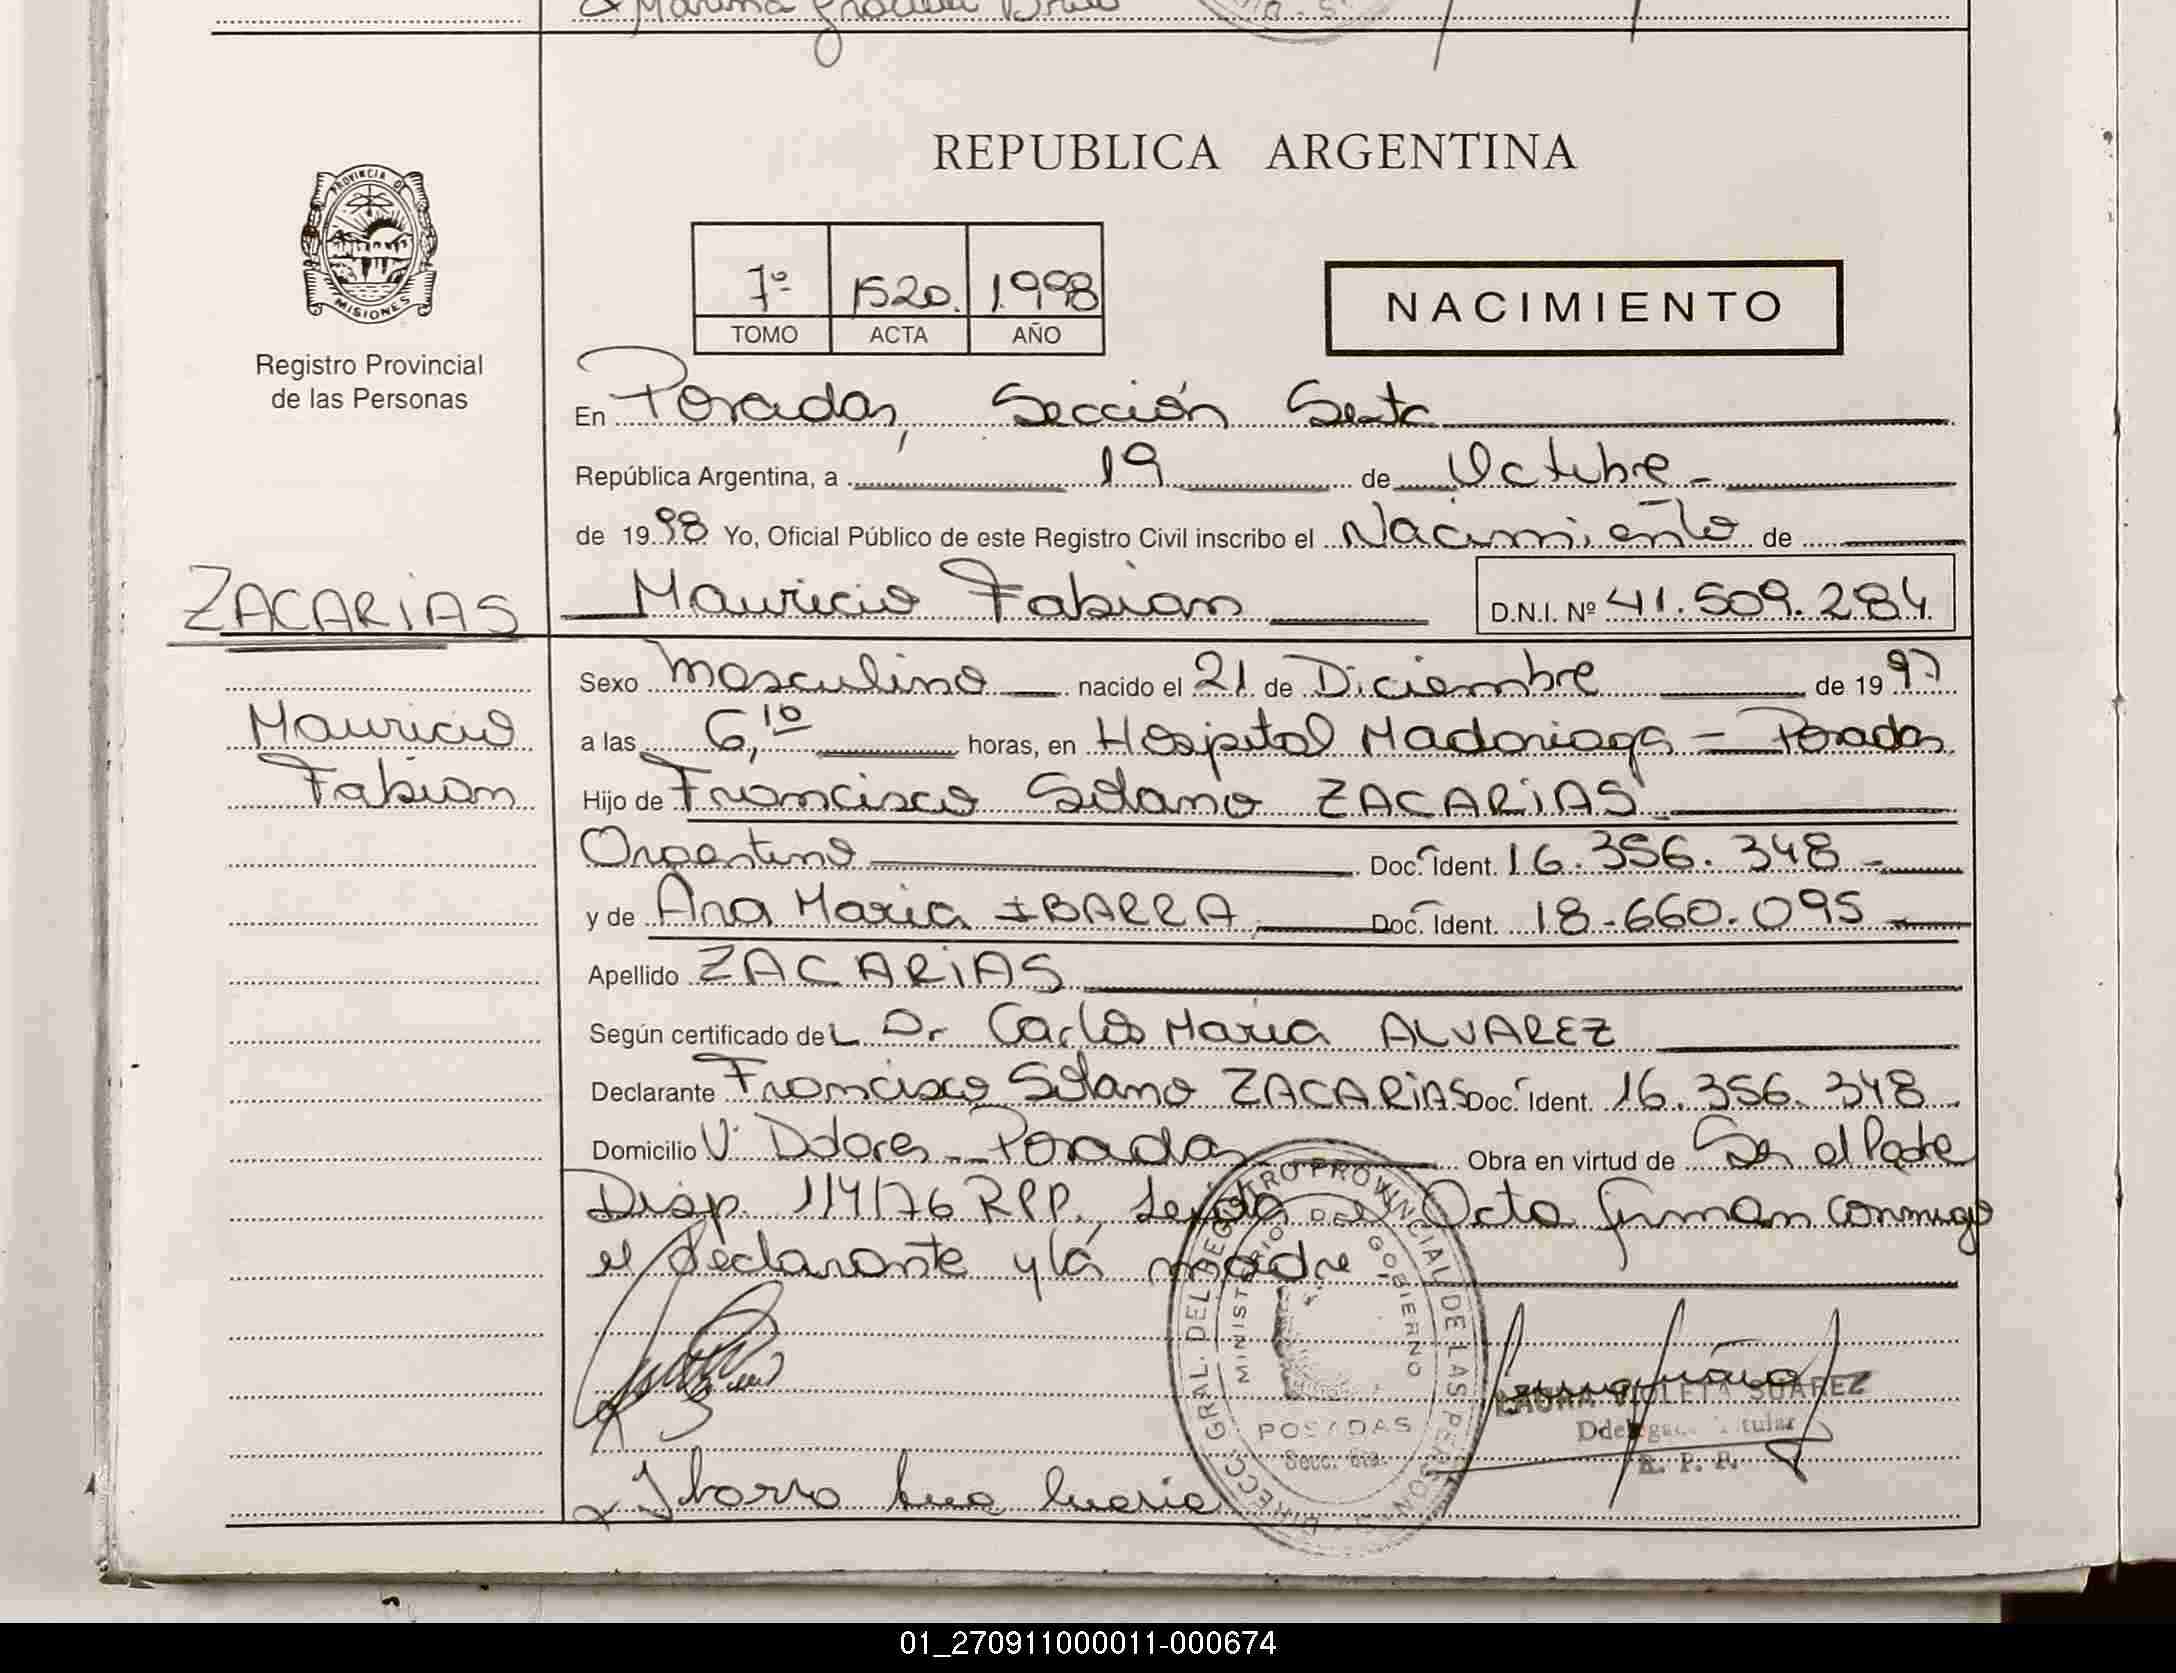 PROVINCIA DE
MISIONES
Registro Provincial
de las Personas
REPUBLICA ARGENTINA
7º 1520. 1.998
TOMO ACTA AÑO
NACIMIENTO
En Posadas, Sección Sexta
República Argentina, a 19 de Octubre
de 1998 Yo, Oficial Público de este Registro Civil inscribo el Nacimiento de
ZACARIAS
Mauricio Fabian D.N.I. Nº 41.509.284
Sexo Masculino nacido el 21 de Diciembre de 1997
Mauricio
a las 6,10 horas, en Hospital Madariaga = Posadas
Fabian
Hijo de Francisco Solano ZACARIAS
Argentino Doc. Ident. 16.356.348
y de Ana Maria IBARRA Doc. Ident. 18-660.095
Apellido ZACARIAS
Según certificado deL Dr Carlos Maria ALVAREZ
Declarante Francisco Solano ZACARIAS Doc. Ident. 16.356.348
Domicilio Vº Dolores - Posadas Obra en virtud de Ser el Padre
Disp. 114/76 RPP. Leída el Acta firman conmigo
el declarante y la madre
DIRECC. GRAL. DEL REGISTRO PROVINCIAL DE LAS PERSONAS
MINISTERIO DE GOBIERNO
POSADAS
Secc. 6ta.
LAURA VIOLETA SUAREZ
Titular
R. P. P.
x Ibarra Ana Maria
01_270911000011-000674